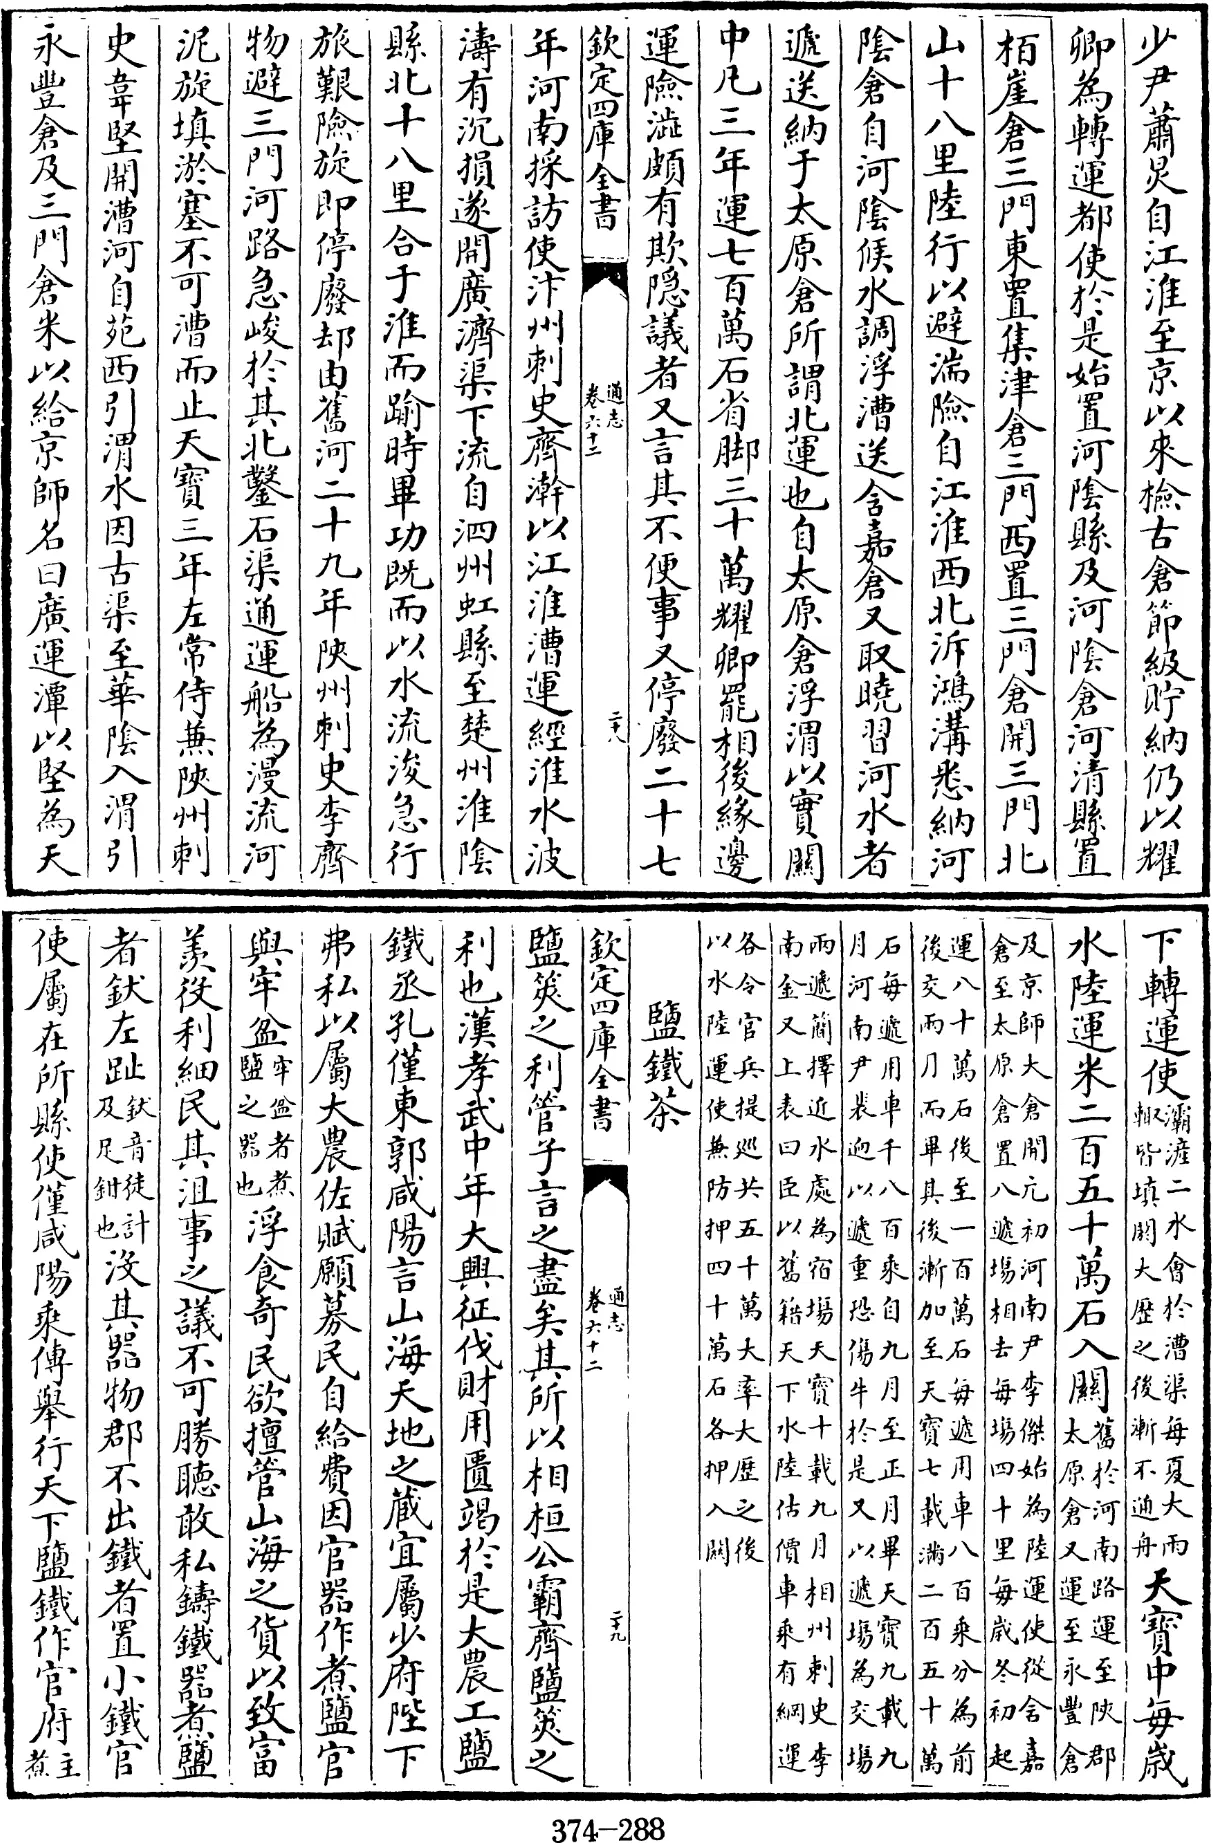 少尹蕭炅自江淮至京以來檢古倉節級貯納仍以耀
卿為轉運都使於是始置河陰縣及河陰倉河清縣置
栢崖倉三門東置集津倉三門西置三門倉開三門北
山十八里陸行以避湍險自江淮西北泝鴻溝悉納河
陰倉自河陰候水調浮漕送含嘉倉又取曉習河水者
遞送納于太原倉所謂北運也自太原倉浮渭以實關
中凡三年運七百萬石省脚三十萬耀卿罷相後緣邊
運險澁頗有欺隠議者又言其不便事又停廢二十七
欽定四庫全書
通志
卷六十二
二十八
年河南採訪使汴州刺史齊澣以江淮漕運經淮水波
濤有沉損遂開廣濟渠下流自泗州虹縣至楚州淮陰
縣北十八里合于淮而踰時畢功既而以水流浚急行
旅艱險旋即停廢却由舊河二十九年陜州刺史李齊
物避三門河路急峻於其北鑿石渠通運船為漫流河
泥旋填淤塞不可漕而止天寶三年左常侍兼陜州刺
史韋堅開漕河自苑西引渭水因古渠至華陰入渭引
永豐倉及三門倉米以給京師名曰廣運潭以堅為天
下轉運使灞滻二水會於漕渠每夏大雨輒皆填閼大歷之後漸不通舟天寶中每歲
水陸運米二百五十萬石入關舊於河南路運至陜郡太原倉又運至永豐倉
及京師大倉開元初河南尹李傑始為陸運使從含嘉
倉至太原倉置八遞場相去每場四十里每歲冬初起
運八十萬石後至一百萬石每遞用車八百乘分為前
後交兩月而畢其後漸加至天寶七載滿二百五十萬
石每遞用車千八百乘自九月至正月畢天寶九載九
月河南尹裴迥以遞重恐傷牛於是又以遞場為交場
兩遞簡擇近水處為宿場天寶十載九月相州刺史李
南金又上表曰臣以舊籍天下水陸估價車乘有綱運
各令官兵提巡共五十萬大率大歷之後
以水陸運使兼防押四十萬石各押入關
鹽鐵茶
欽定四庫全書
通志
卷六十二
二十九
鹽筴之利管子言之盡矣其所以相桓公霸齊鹽筴之
利也漢孝武中年大興征伐財用匱竭於是大農工鹽
鐵丞孔僅東郭咸陽言山海天地之藏宜屬少府陛下
弗私以屬大農佐賦願募民自給費因官器作煮鹽官
與牢盆牢盆者煮鹽之器也浮食奇民欲擅管山海之貨以致富
羨役利細民其沮事之議不可勝聽敢私鑄鐵器煮鹽
者釱左趾釱音徒計及足鉗也沒其器物郡不出鐵者置小鐵官
使屬在所縣使僅咸陽乘傳舉行天下鹽鐵作官府主煮
374-288